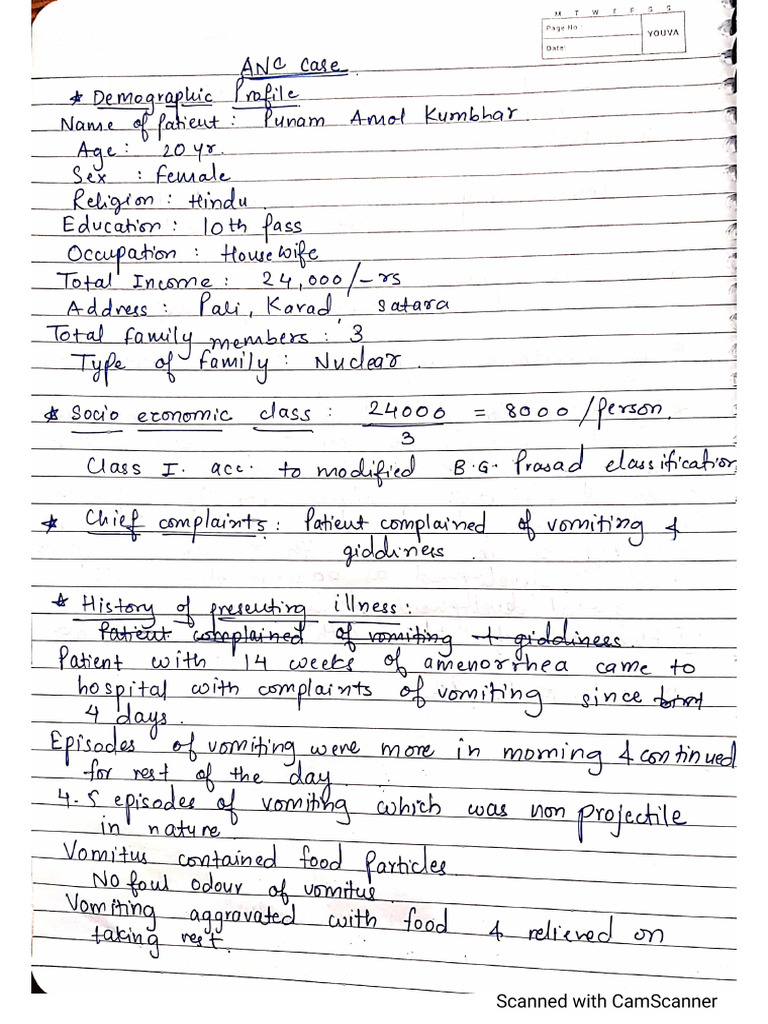 M T W T F S S
Page No.:
YOUVA
Date:
ANC Case
* Demographic Profile
Name of Patient : Punam Amol Kumbhar
Age : 20 yr.
Sex : Female
Religion : Hindu
Education : 10th Pass
Occupation : Housewife
Total Income : 24,000/- rs
Address : Pali, Karad, Satara
Total family members : 3
Type of family : Nuclear.
* Socio economic class : 24000 = 8000 /person.
3
Class I. acc. to modified B.G. Prasad classification
* Chief complaints : Patient complained of vomiting & giddiness
* History of presenting illness :
Patient complained of vomiting + giddiness.
Patient with 14 weeks of amenorrhea came to
hospital with complaints of vomiting since
4 days.
Episodes of vomiting were more in morning & continued
for rest of the day
4-5 episodes of vomiting which was non projectile
in nature
Vomitus contained food particles.
No foul odour of vomitus.
Vomiting aggravated with food & relieved on
taking rest.
Scanned with CamScanner